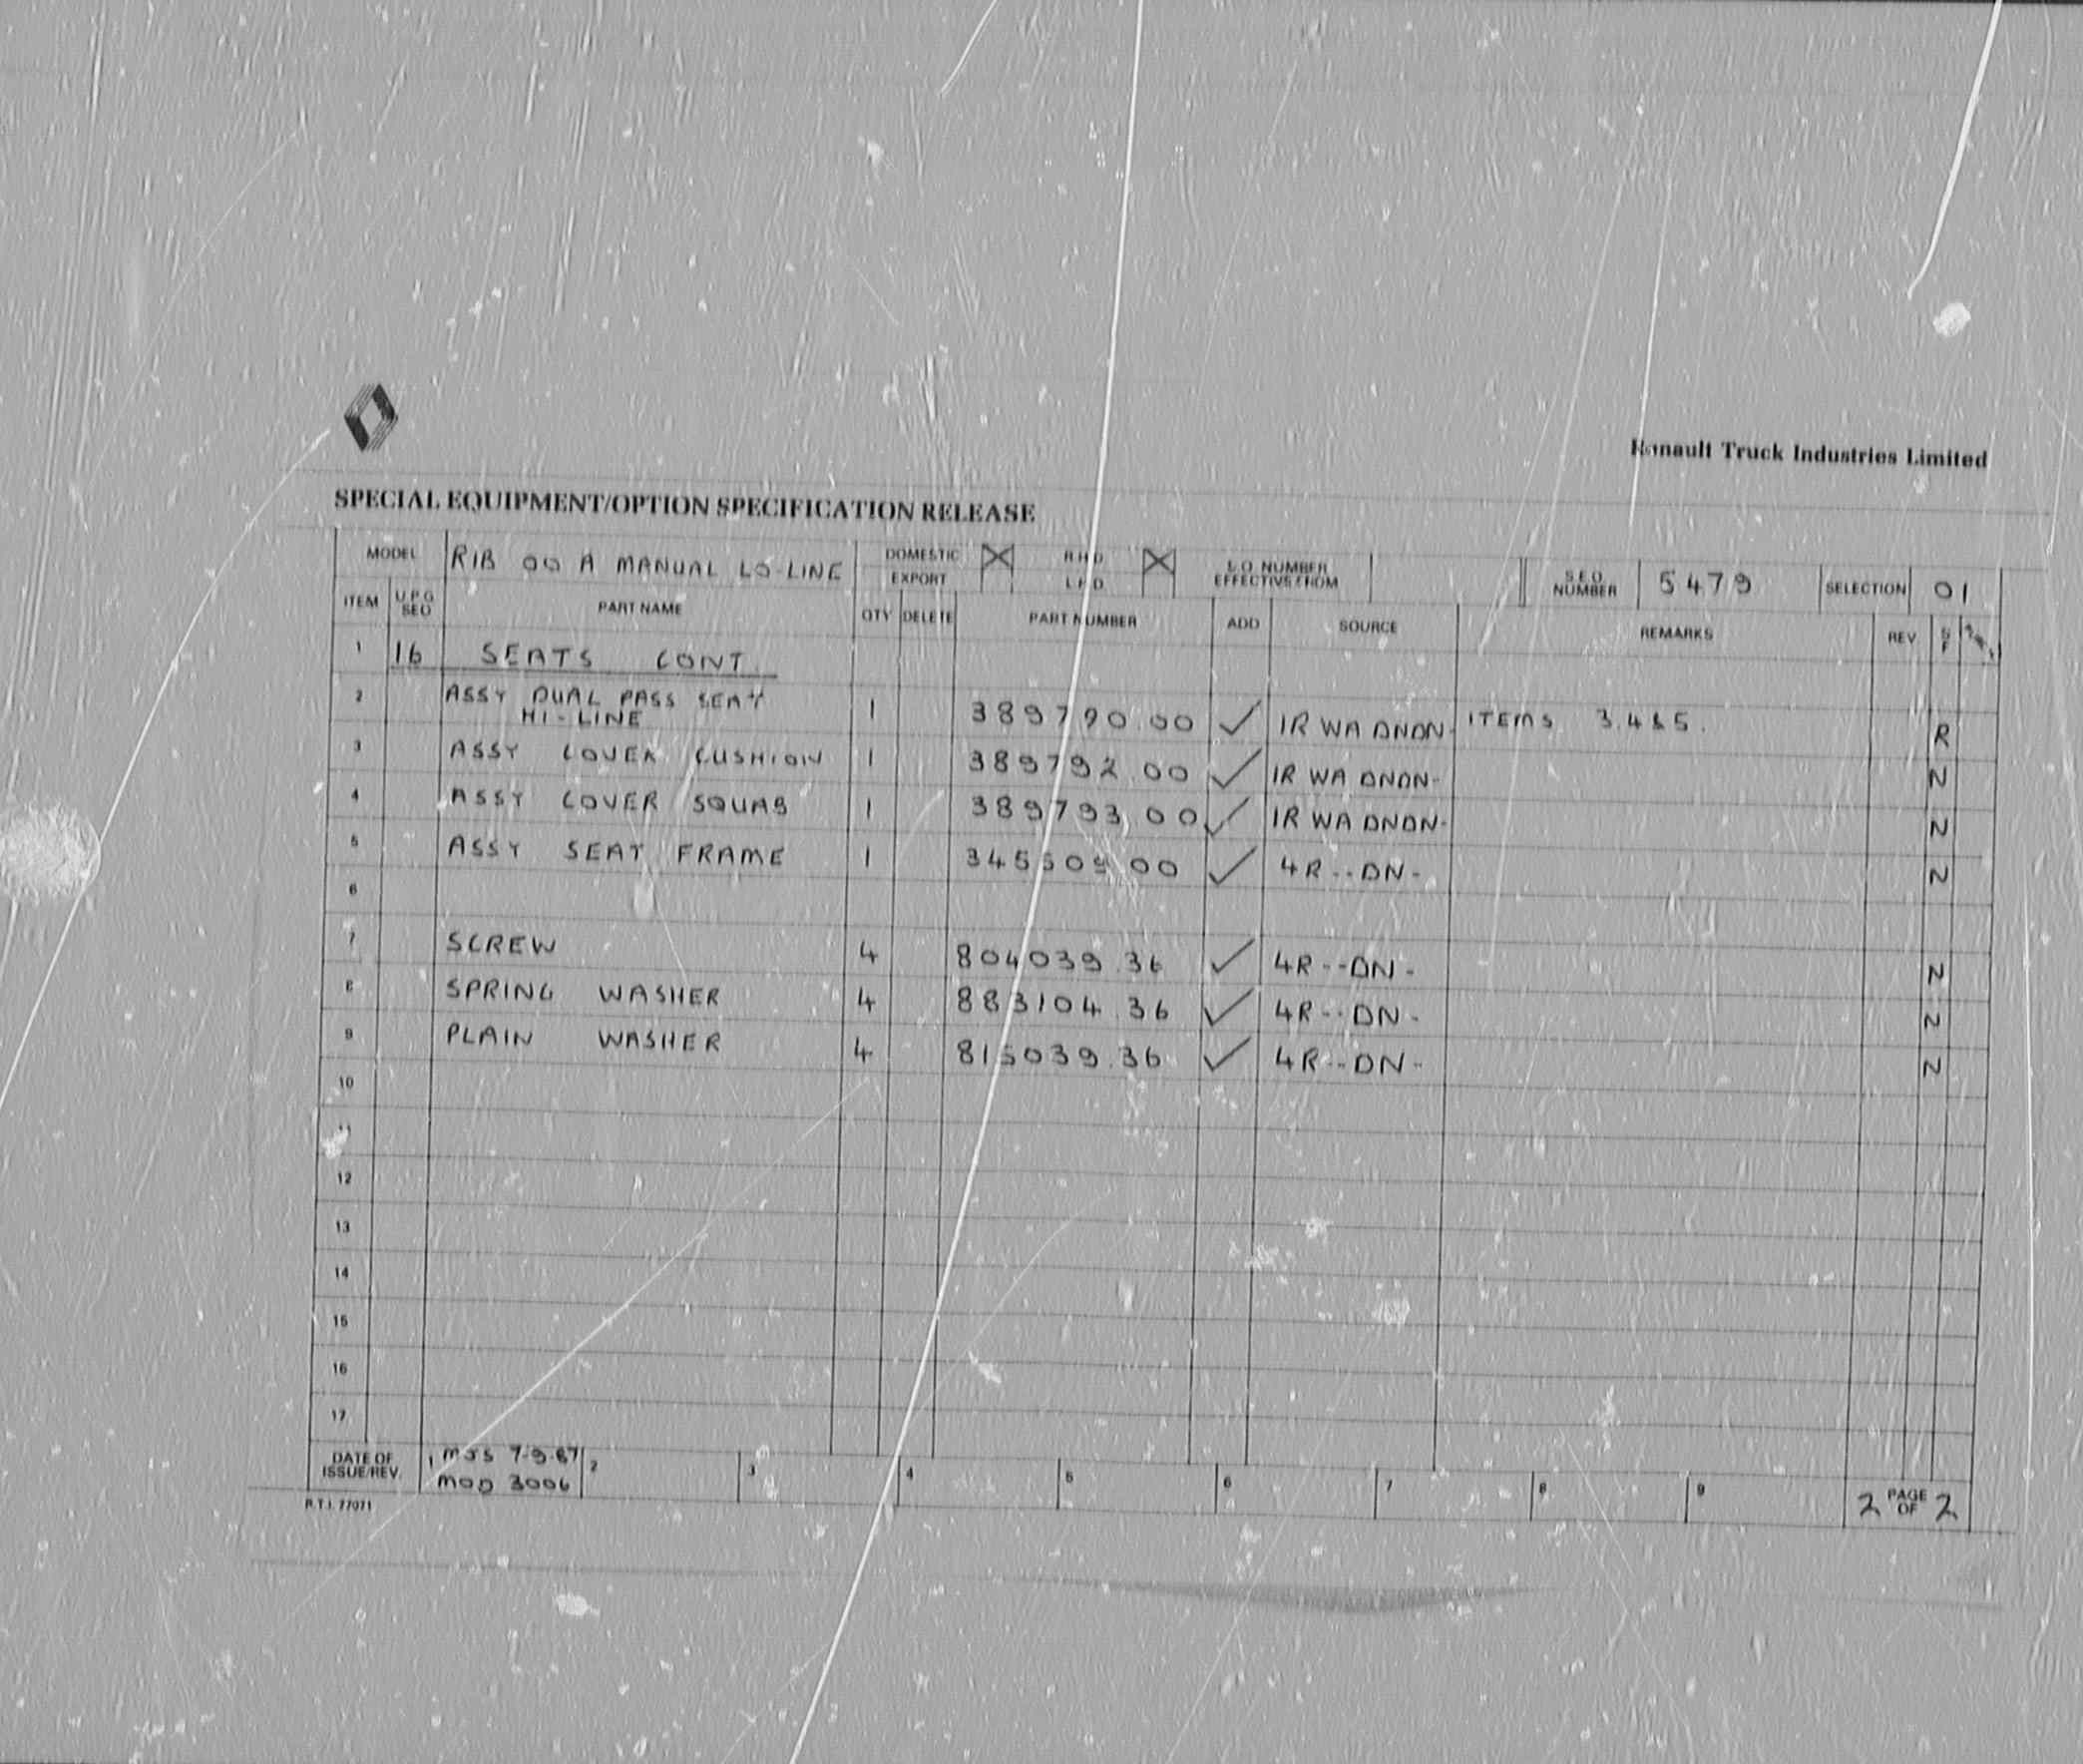 Renault Truck Industries Limited
SPECIAL EQUIPMENT/OPTION SPECIFICATION RELEASE
MODEL RIB 00 A MANUAL LO-LINE DOMESTIC EXPORT R H D L H D L.O. NUMBER EFFECTIVE FROM S.E.O. NUMBER 5479 SELECTION 01
ITEM U.P.G. SEQ PART NAME QTY DELETE PART NUMBER ADD SOURCE REMARKS REV
1 16 SEATS CONT.
2 ASSY DUAL PASS SEAT HI-LINE 1 389790.00 ✓ 1R WA DNDN- ITEMS 3.4&5. R
3 ASSY COVER CUSHION 1 389792.00 ✓ 1R WA DNDN- N
4 ASSY COVER SQUAB 1 389793.00 ✓ 1R WA DNDN- N
5 ASSY SEAT FRAME 1 ✓ 4R--DN- N
6
7 SCREW 4 804039.36 ✓ 4R--DN- N
8 SPRING WASHER 4 883104.36 ✓ 4R--DN- N
9 PLAIN WASHER 4 815039.36 ✓ 4R--DN- N
10
11
12
13
14
15
16
17
DATE OF ISSUE/REV. 1 MJS 7-9-87 2 3 4 5 6 7 8 9 2 PAGE OF 2
MOD 3006
R.T.I. 77071